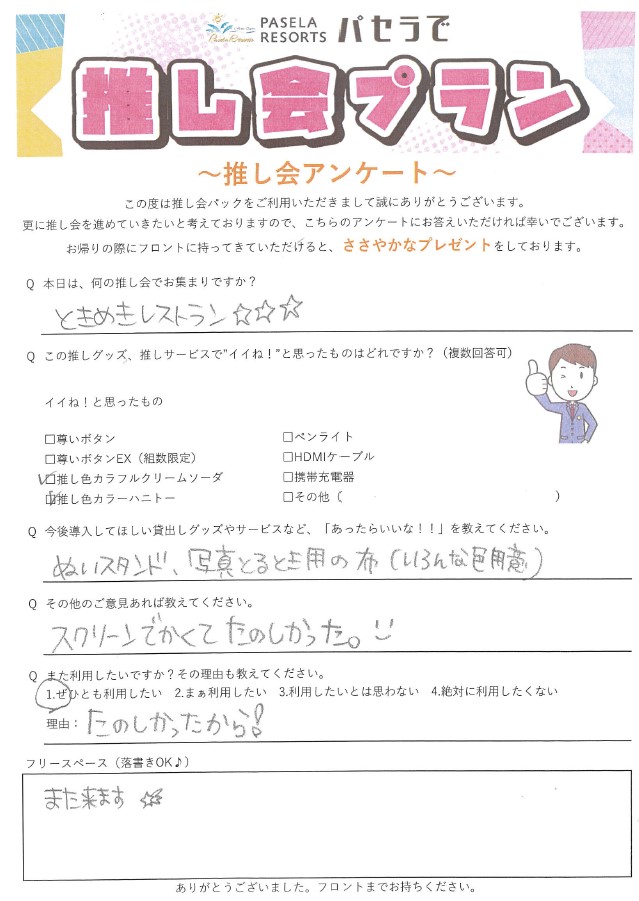 PASELA RESORTS パセラで
推し会プラン
～推し会アンケート～
この度は推し会パックをご利用いただきまして誠にありがとうございます。
更に推し会を進めていきたいと考えておりますので、こちらのアンケートにお答えいただければ幸いでございます。
お帰りの際にフロントに持ってきていただけると、ささやかなプレゼントをしております。
Q 本日は、何の推し会でお集まりですか？
ときめきレストラン☆☆☆
Q この推しグッズ、推しサービスで"イイね！"と思ったものはどれですか？（複数回答可）
イイね！と思ったもの
□尊いボタン □ペンライト
□尊いボタンEX（組数限定） □HDMIケーブル
□推し色カラフルクリームソーダ □携帯充電器
□推し色カラーハニトー □その他（ ）
Q 今後導入してほしい貸出しグッズやサービスなど、「あったらいいな！！」を教えてください。
ぬいスタンド、写真とるとき用の布（いろんな色用意）
Q その他のご意見あれば教えてください。
スクリーンでかくてたのしかった。
Q また利用したいですか？その理由も教えてください。
1.ぜひとも利用したい 2.まぁ利用したい 3.利用したいとは思わない 4.絶対に利用したくない
理由：たのしかったから！
フリースペース（落書きOK♪）
また来ます☆
ありがとうございました。フロントまでお持ちください。